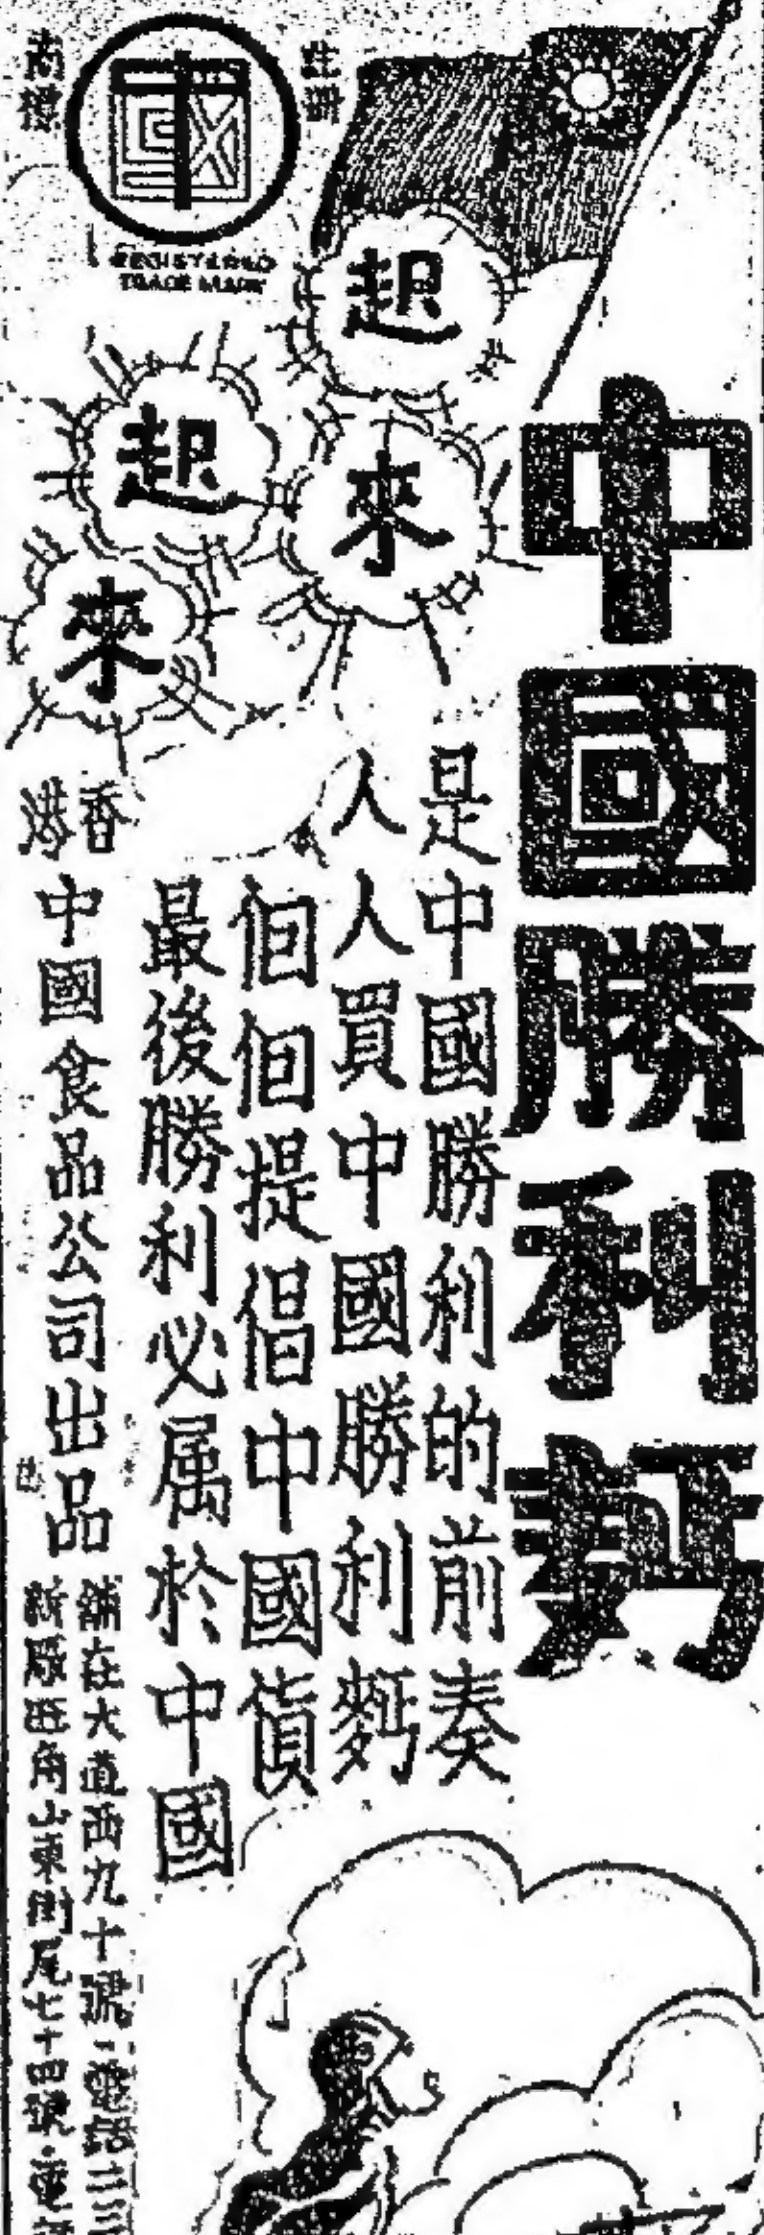 註冊
商標
中國
REGISTERED
TRADE MARK
起來
起來
中國勝利麪
是中國勝利的前奏
人人買中國勝利麪
個個提倡中國貨
最後勝利必属於中國
香港
中國食品公司出品
舖在大道西九十號·電話三三
新廠旺角山東街尾七十四號·電話